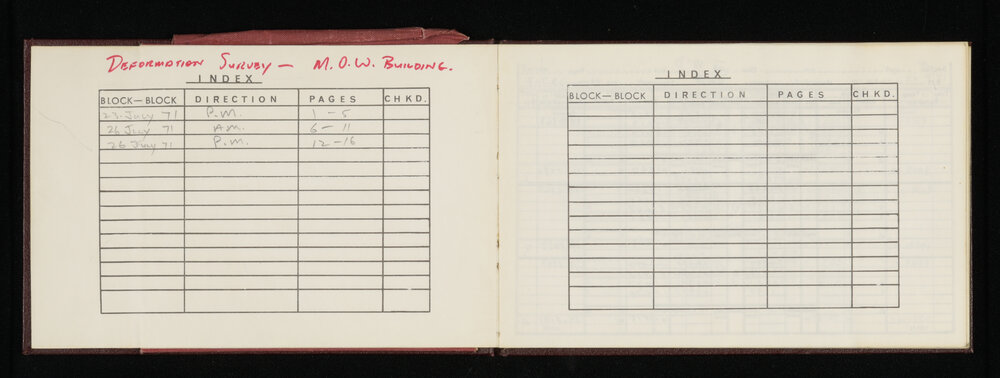 DEFORMATION SURVEY — M.O.W. BUILDING.
INDEX
BLOCK—BLOCK DIRECTION PAGES CHKD.
23 July 71 P.M. 1 – 5
26 July 71 A.M. 6 – 11
26 July 71 P.M. 12 – 16
INDEX
BLOCK—BLOCK DIRECTION PAGES CHKD.